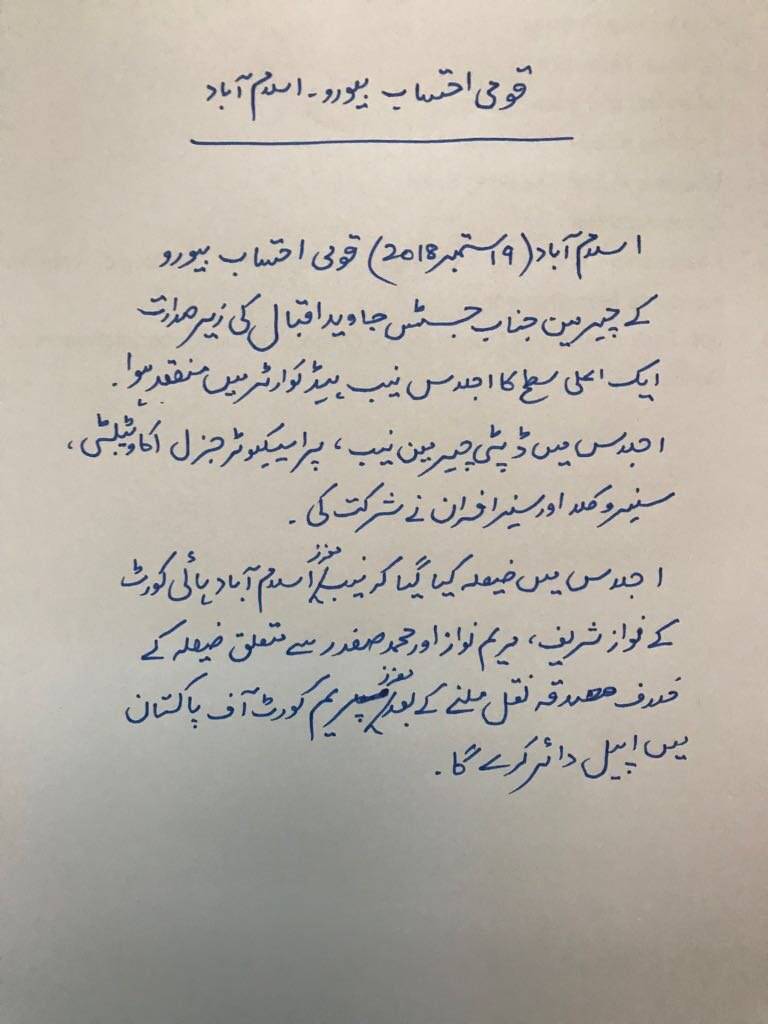 قومی احتساب بیورو۔ اسلام آباد
اسلام آباد (19 ستمبر 2018) قومی احتساب بیورو
کے چیرمین جناب جسٹس جاوید اقبال کی زیر صدارت
ایک اعلیٰ سطح کا اجلاس نیب ہیڈ کوارٹر میں منعقد ہوا۔
اجلاس میں ڈپٹی چیرمین نیب، پراسیکیوٹر جنرل اکاونٹبلٹی،
سنیر وکلاء اور سنیر افسران نے شرکت کی۔
اجلاس میں فیصلہ کیا گیا کہ نیب معزز اسلام آباد ہائی کورٹ
کے نواز شریف، مریم نواز اور محمد صفدر سے متعلق فیصلہ کے
خلاف مصدقہ نقل ملنے کے بعد معزز سپریم کورٹ آف پاکستان
میں اپیل دائر کرے گا۔